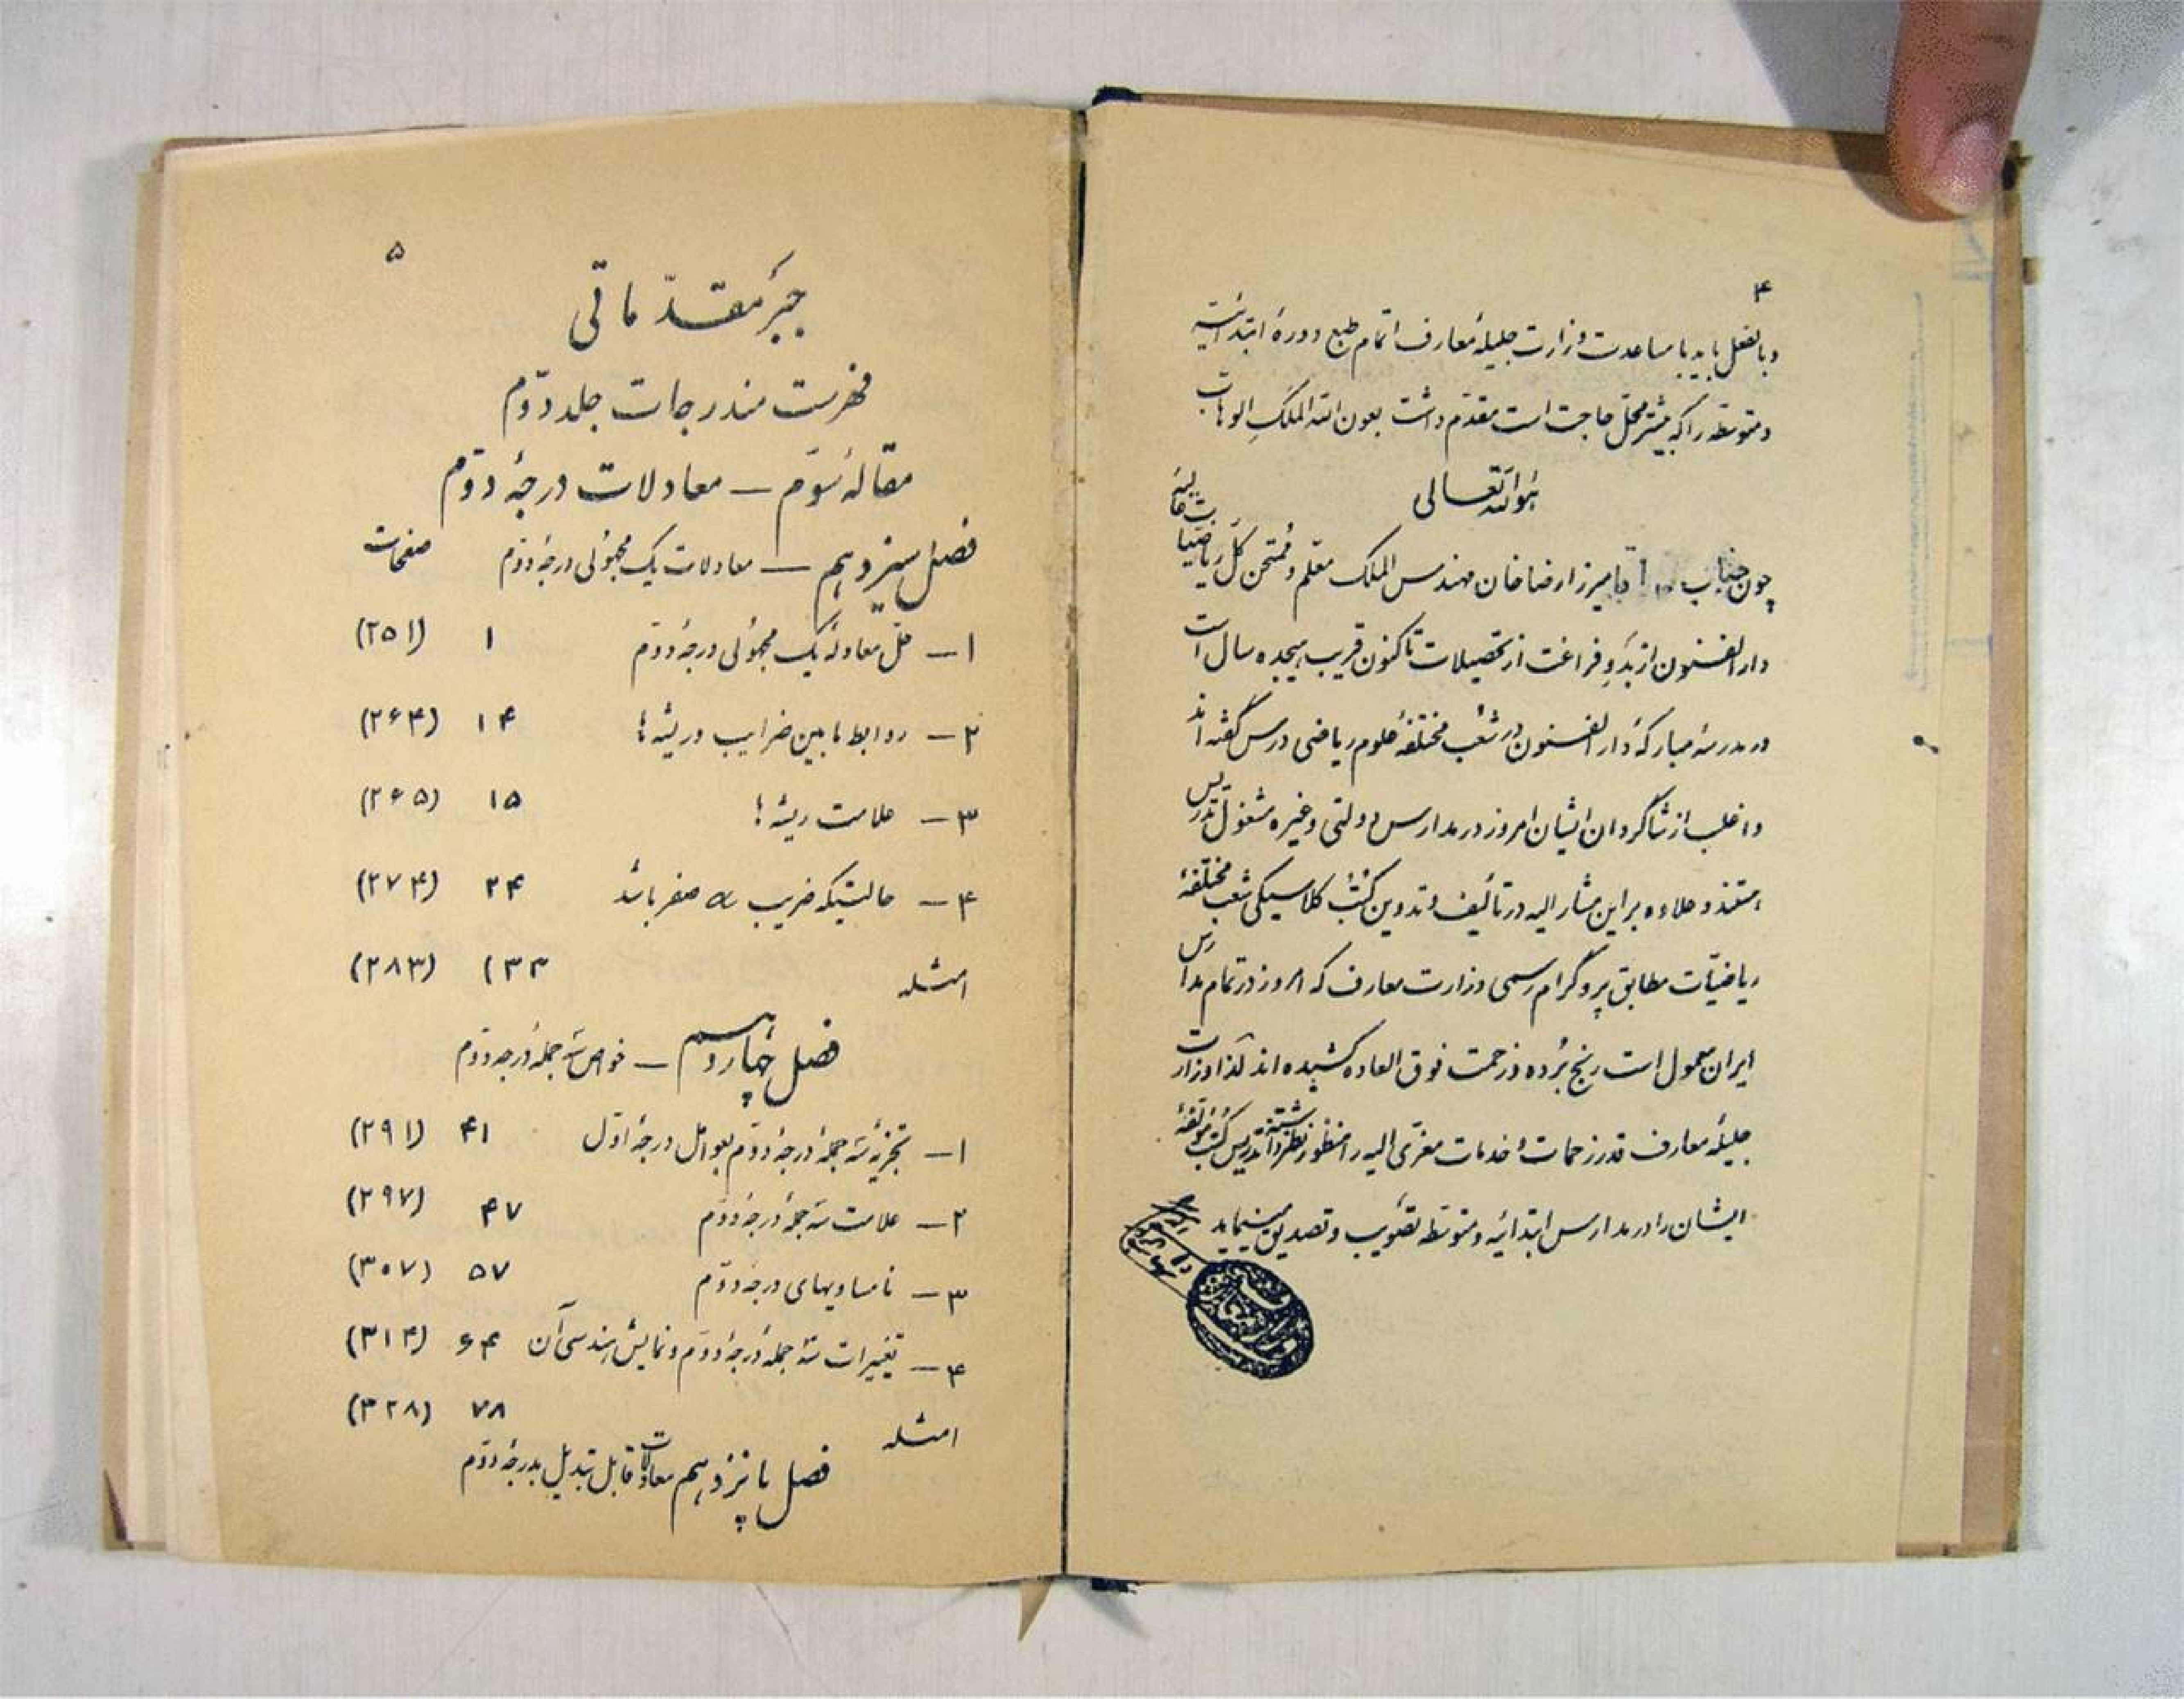 ۴
و بالفعل باید با مساعدت وزارت جلیلهٔ معارف اتمام طبع دورهٔ ابتدائیه
و متوسطه را که بیشتر محل حاجت است مقدم داشت بعون الله الملک الوهاب
هو الله تعالی
چون جناب آقا میرزا رضا خان مهندس الملک معلم و ممتحن کل ریاضیات عالیه
دار الفنون از بدو فراغت از تحصیلات تاکنون قریب هیجده سال است
در مدرسهٔ مبارکهٔ دار الفنون در شعب مختلفهٔ علوم ریاضی درس گفته اند
و اغلب از شاگردان ایشان امروز در مدارس دولتی و غیره مشغول تدریس
هستند و علاوه بر این مشار الیه در تألیف و تدوین کتب کلاسیکی شعب مختلفهٔ
ریاضیات مطابق پروگرام رسمی وزارت معارف که امروز در تمام مدارس
ایران معمول است رنج برده و زحمت فوق العاده کشیده اند لذا وزارت
جلیلهٔ معارف قدر زحمات و خدمات معزی الیه را منظور نظر داشته تدریس کتب مؤلفهٔ
ایشان را در مدارس ابتدائیه و متوسطه تصویب و تصدیق مینماید
۵
جبر مقدماتی
فهرست مندرجات جلد دوم
مقالهٔ سوم — معادلات درجهٔ دوم
فصل سیزدهم — معادلات یک مجهولی درجهٔ دوم صفحات
۱ — حل معادلهٔ یک مجهولی درجهٔ دوم ۱ (۲۵۱)
۲ — روابط مابین ضرایب و ریشه‌ها ۱۴ (۲۶۴)
۳ — علامت ریشه‌ها ۱۵ (۲۶۵)
۴ — حالتیکه ضریب a صفر باشد ۲۴ (۲۷۴)
امثله ۳۳ (۲۸۳)
فصل چهاردهم — خواص سه جملهٔ درجه دوم
۱ — تجزیهٔ سه جملهٔ درجهٔ دوم بعوامل درجهٔ اول ۴۱ (۲۹۱)
۲ — علامت سه جملهٔ درجهٔ دوم ۴۷ (۲۹۷)
۳ — نامساویهای درجهٔ دوم ۵۷ (۳۰۷)
۴ — تغییرات سه جملهٔ درجهٔ دوم و نمایش هندسی آن ۶۴ (۳۱۴)
امثله ۷۸ (۳۲۸)
فصل پانزدهم معادلات قابل تبدیل بدرجهٔ دوم